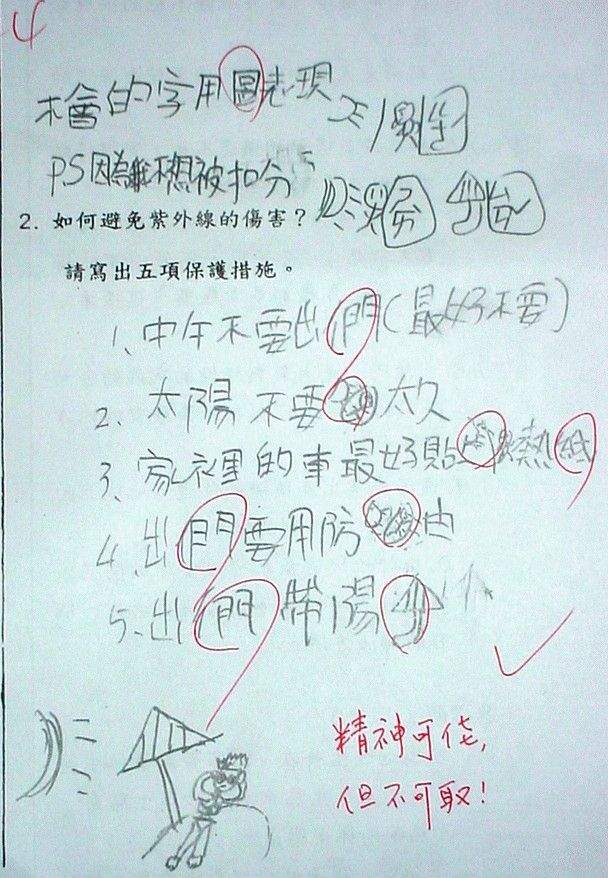 -4
不會的字用圖表現
PS因為不想被扣分
2. 如何避免紫外線的傷害？
請寫出五項保護措施。
1、中午不要出門(最好不要)
2、太陽不要太久
3、家裡的車最好貼熱紙
4、出門要用防油
5、出門帶陽
精神可佳,
但不可取!